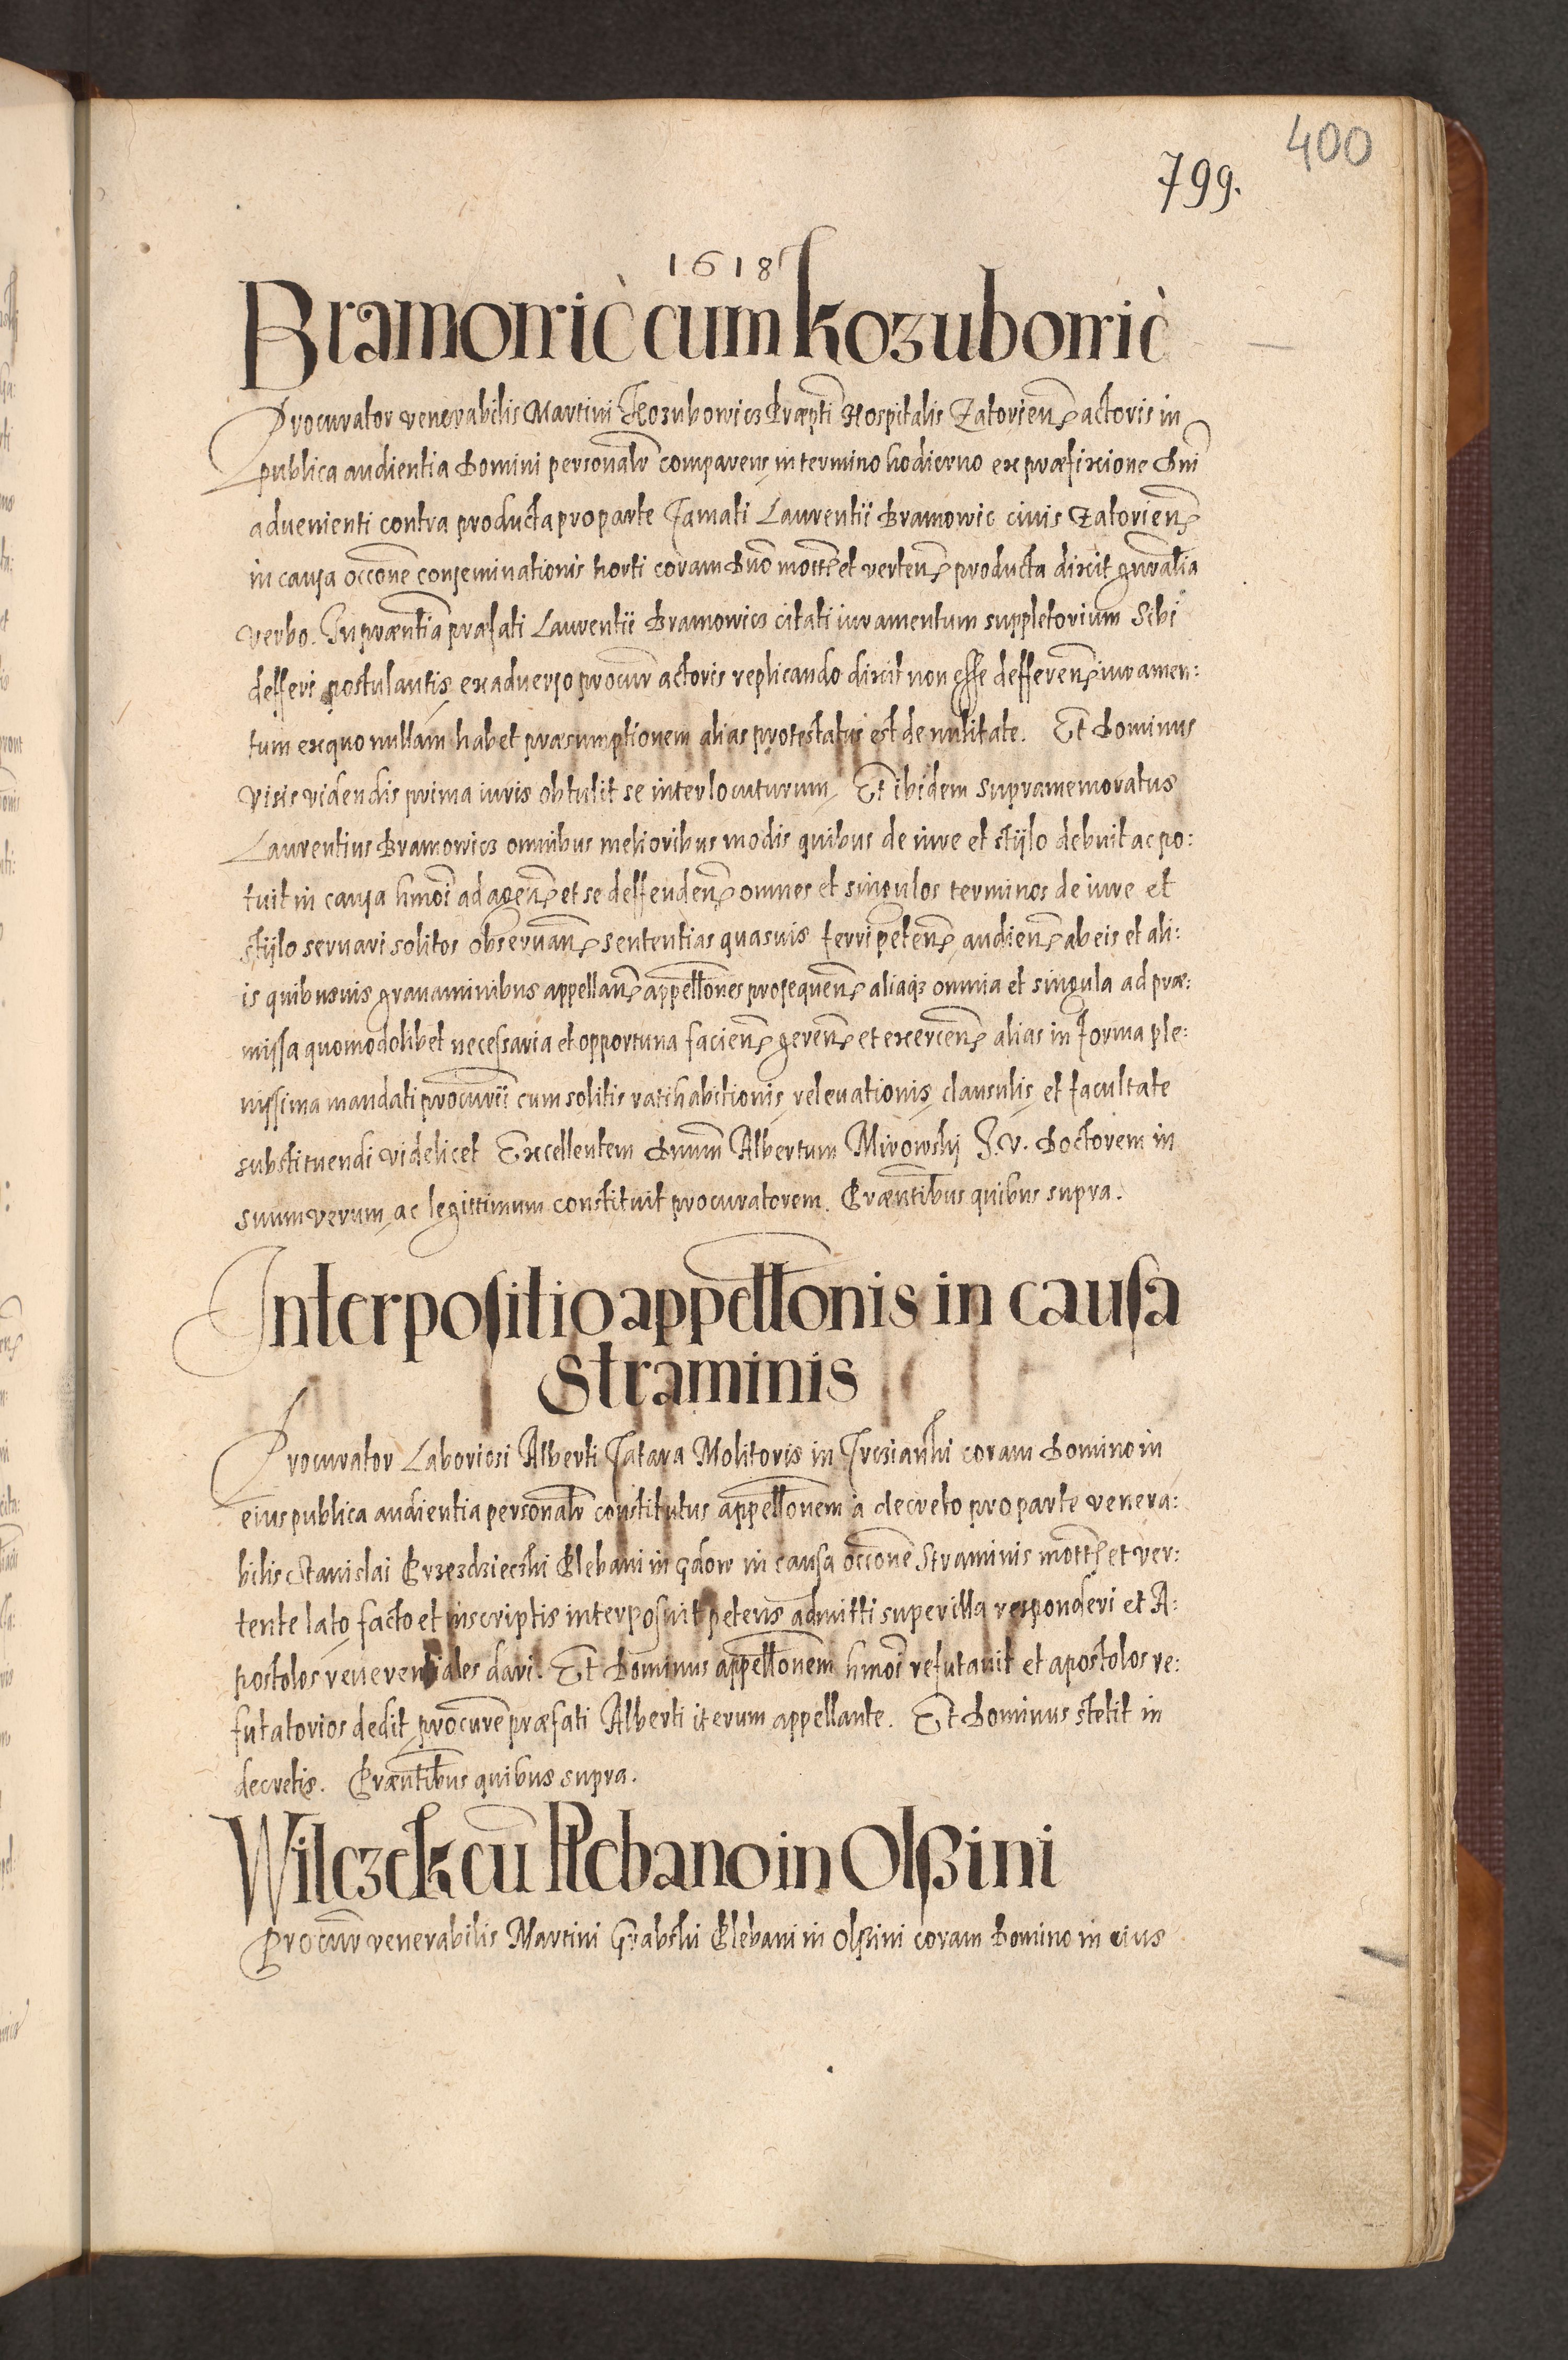 400
799.
1618
Bramowic cum Kozubowic
Procurator venerabilis Martini Kozubowicz Præpti Hospitalis Zatorien actoris in
publica audientia Domini personalr comparens in termino hodierno ex præfixione Dni
advenienti contra producta pro parte famati Laurentii Bramowic civis Zatorien
in causa occone conseminationis horti coram Dno mot et verten producta dixit gnralia
verbo. In præntia præfati Laurentii Bramowicz citati iuramentum suppletorium sibi
defferi postulantis ex adverso procur actoris replicando dixit non esse defferen iuramen:
tum ex quo nullam habet præsumptionem alias protestatus est de nulitate. Et Dominus
visis videndis prima iuris obtulit se interlocuturum. Et ibidem supramemoratus
Laurentius Bramowicz omnibus melioribus modis quibus de iure et stijlo debuit ac po:
tuit in causa hmoi ad agen et se deffenden omnes et singulos terminos de iure et
stijlo servari solitos observan sententias quasvis ferri peten audien ab eis et ali:
is quibusvis gravaminibus appellan appellones prosequen aliaqz omnia et singula ad præ:
missa quomodolibet necessaria et opportuna facien geren et exercen alias in forma ple:
nissima mandati procurii cum solitis ratihabitionis relevationis clausulis et facultate
substituendi videlicet Excellentem Dnum Albertum Mirowskij J. V. Doctorem in
suum verum ac legittimum constituit procuratorem. Præntibus quibus supra.
Interpositio appellonis in causa
Straminis
Procurator Laboriosi Alberti Fatara Molitoris in coram Domino in
eius publica audientia personalr constitutus appellonem à decreto pro parte venera:
bilis Stanislai Przezdziecki Plebani in Gdow in causa occone Straminis mot et ver:
tente lato facto et in scriptis interposuit petens admitti super illa responderi et A:
postolos reverentiales dari. Et Dominus appellonem hmoi refutavit et apostolos re:
futatorios dedit procure præfati Alberti iterum appellante. Et Dominus stetit in
decretis. Præntibus quibus supra.
Wilczek cu Plebano in Olszini
Procur venerabilis Martini Grabski Plebani in Olszini coram Domino in eius